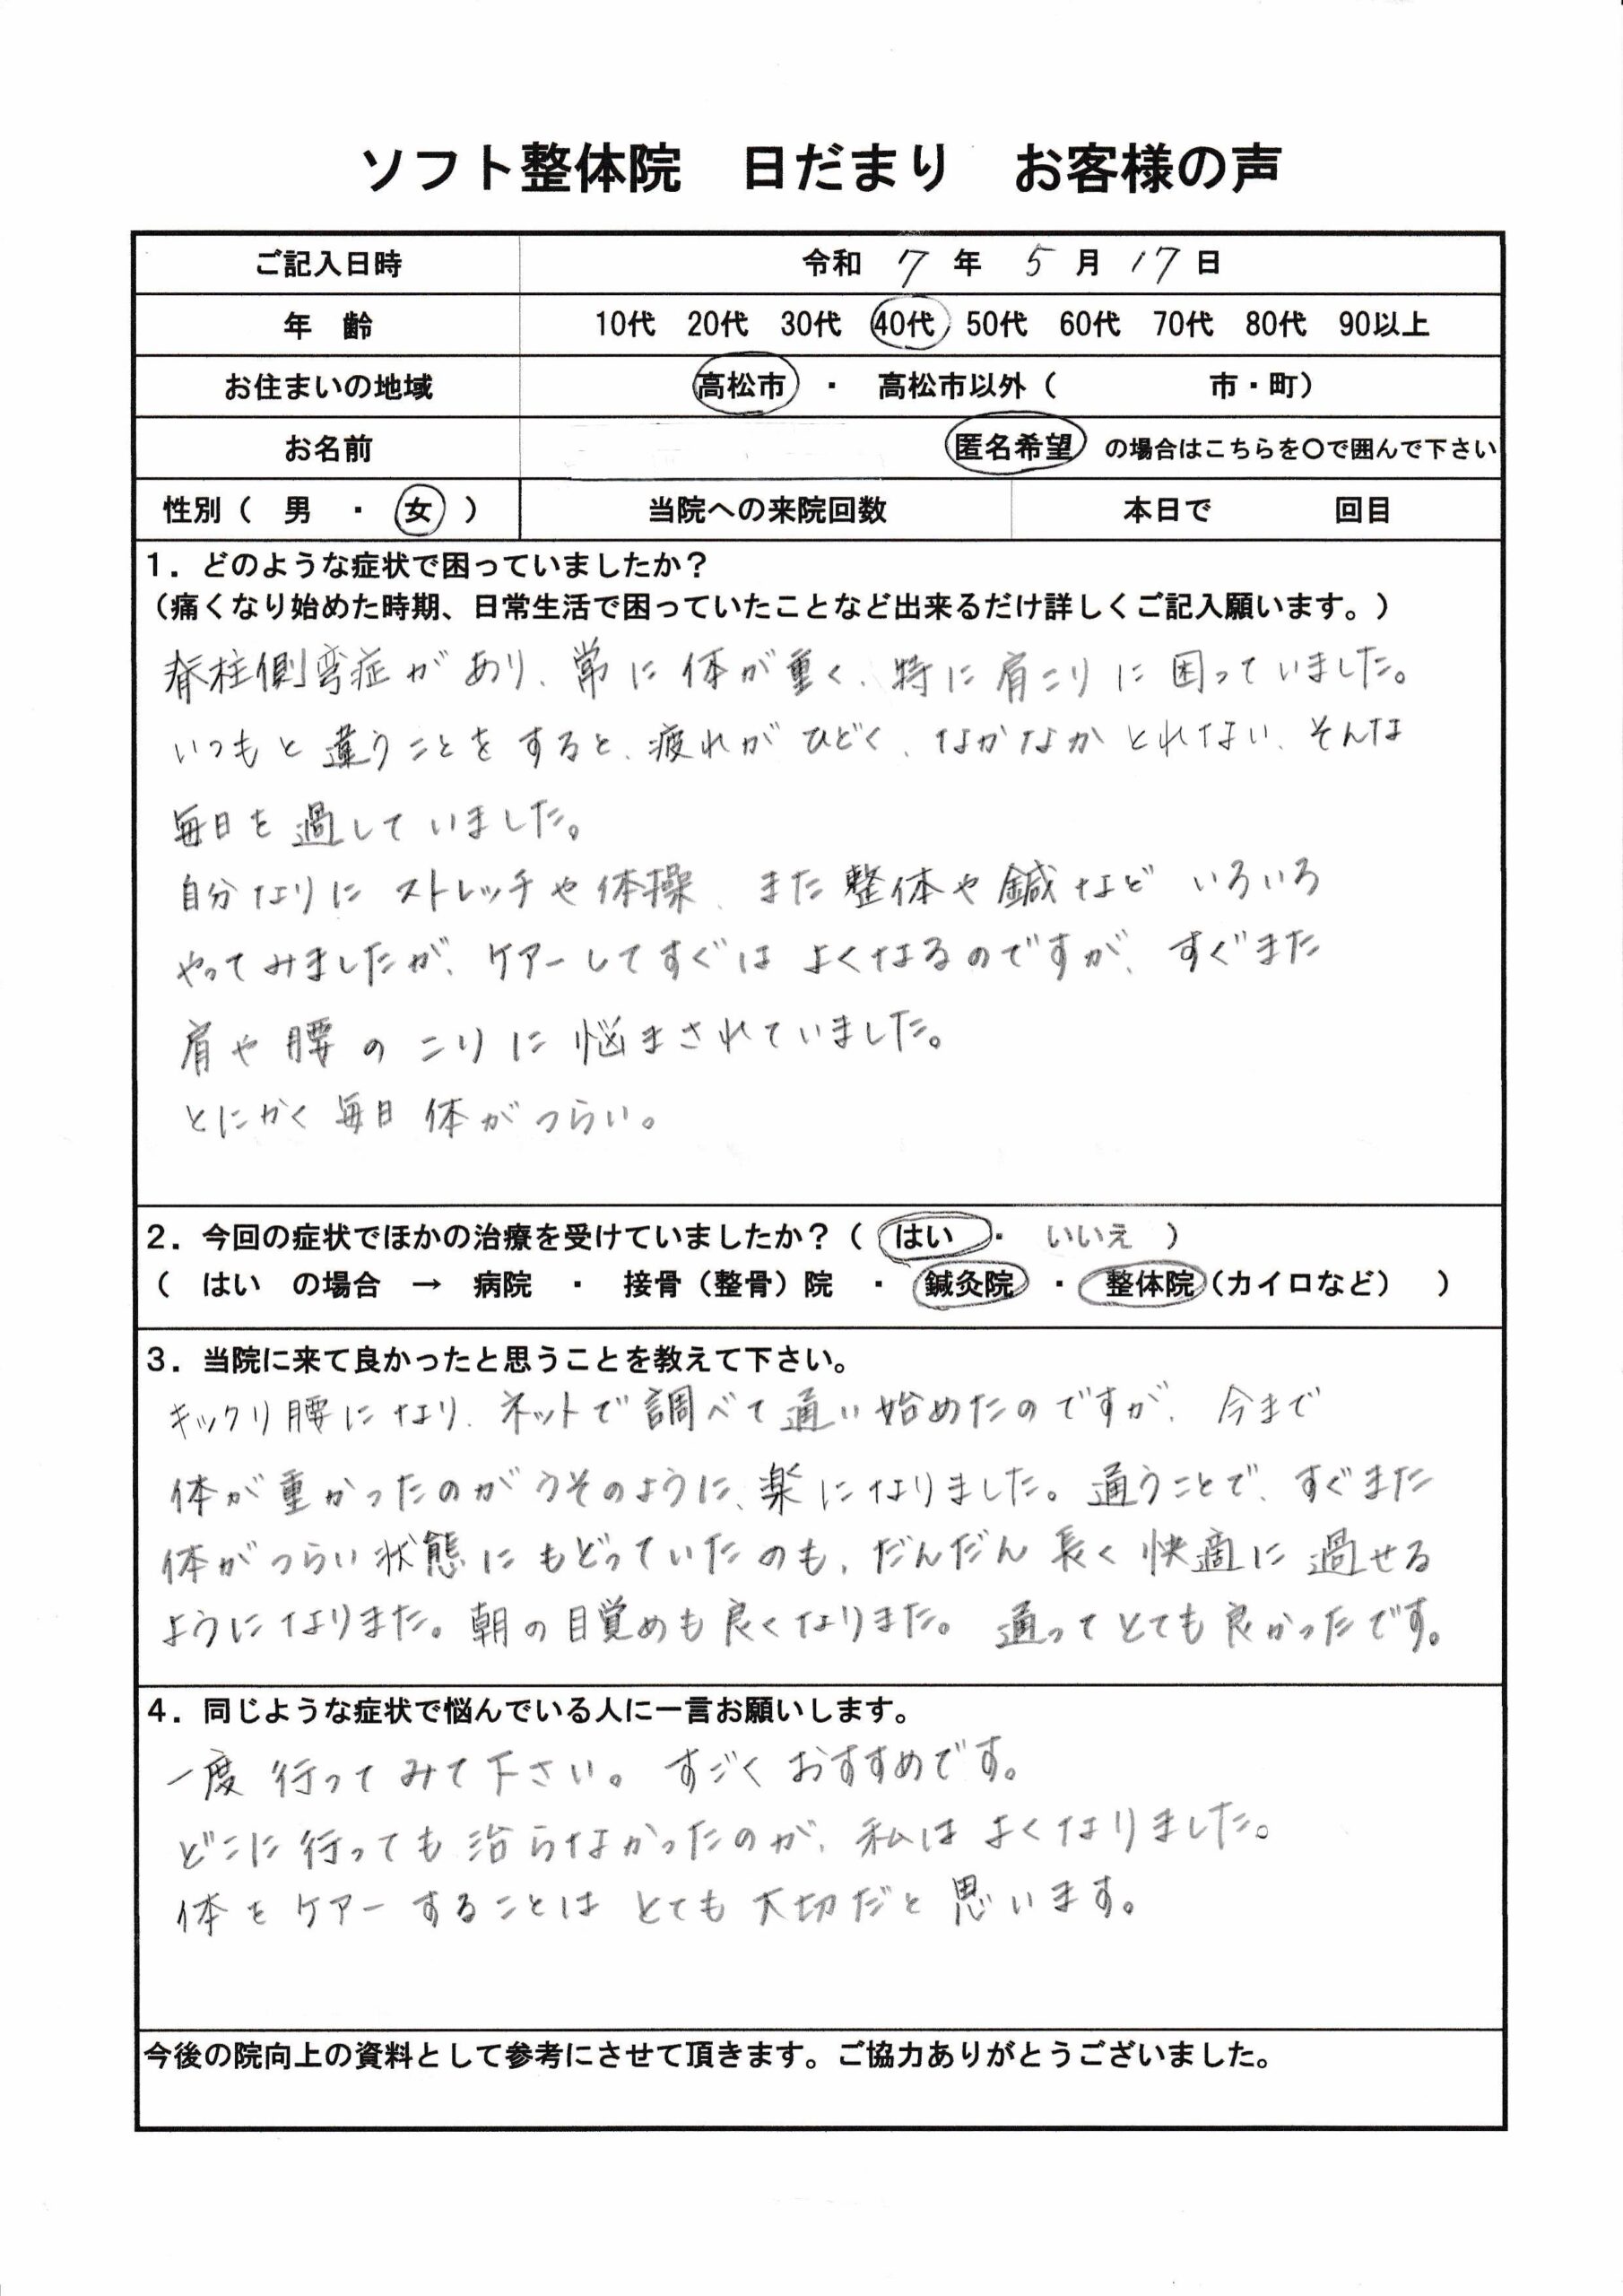 ソフト整体院　日だまり　お客様の声
ご記入日時　令和 7 年 5 月 17 日
年　齢　10代　20代　30代　40代　50代　60代　70代　80代　90以上
お住まいの地域　高松市　・　高松市以外（　　　　　市・町）
お名前　匿名希望　の場合はこちらを〇で囲んで下さい
性別（　男　・　女　）　当院への来院回数　本日で　　　　回目
1．どのような症状で困っていましたか？
（痛くなり始めた時期、日常生活で困っていたことなど出来るだけ詳しくご記入願います。）
脊柱側弯症があり、常に体が重く、特に肩こりに困っていました。
いつもと違うことをすると、疲れがひどく、なかなかとれない、そんな
毎日を過していました。
自分なりにストレッチや体操、また整体や鍼などいろいろ
やってみましたが、ケアーしてすぐはよくなるのですが、すぐまた
肩や腰のこりに悩まされていました。
とにかく毎日体がつらい。
2．今回の症状でほかの治療を受けていましたか？（　はい　・　いいえ　）
（　はい　の場合　→　病院　・　接骨（整骨）院　・　鍼灸院　・　整体院（カイロなど）　）
3．当院に来て良かったと思うことを教えて下さい。
キックリ腰になり、ネットで調べて通い始めたのですが、今まで
体が重かったのがうそのように、楽になりました。通うことで、すぐまた
体がつらい状態にもどっていたのも、だんだん長く快適に過せる
ようになりまた。朝の目覚めも良くなりまた。通ってとても良かったです。
4．同じような症状で悩んでいる人に一言お願いします。
一度行ってみて下さい。すごくおすすめです。
どこに行っても治らなかったのが、私はよくなりました。
体をケアーすることはとても大切だと思います。
今後の院向上の資料として参考にさせて頂きます。ご協力ありがとうございました。